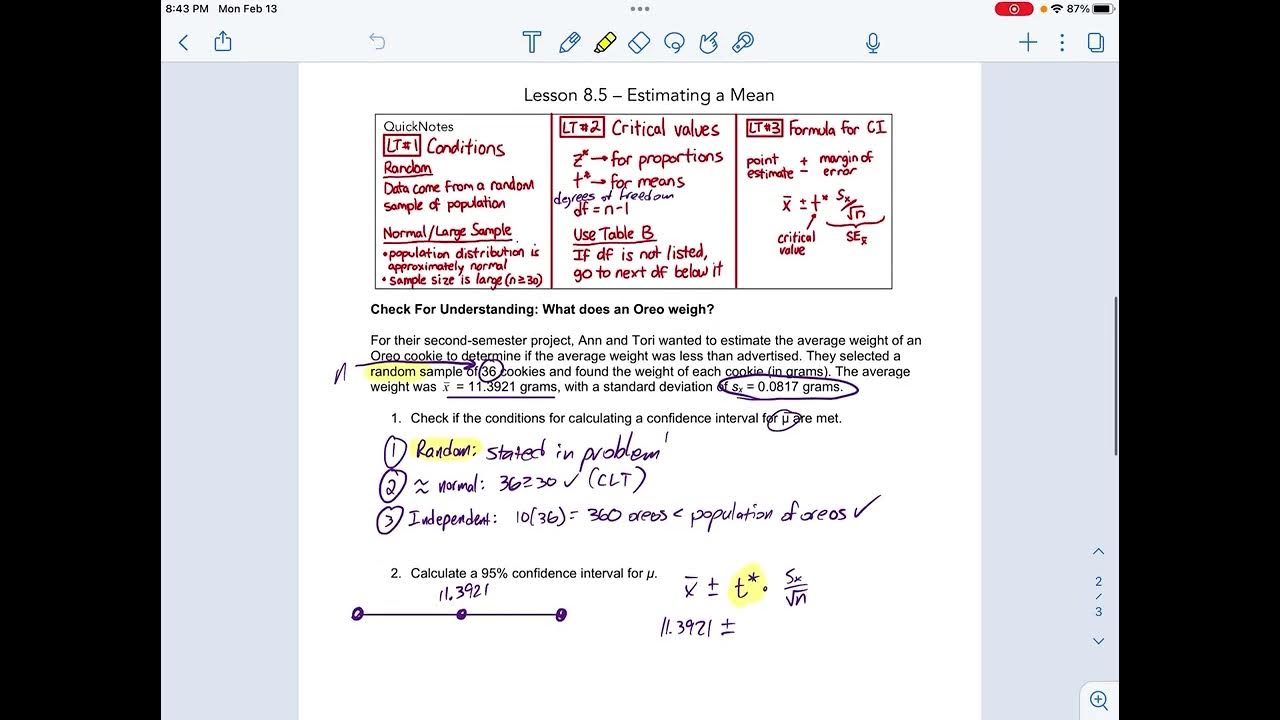 8:43 PM Mon Feb 13
87%
Lesson 8.5 – Estimating a Mean
QuickNotes
LT#1 Conditions
Random
Data come from a random
sample of population
Normal/Large Sample
•population distribution is
approximately normal
•sample size is large (n≥30)
LT#2 Critical values
z* → for proportions
t* → for means
degrees of freedom
df = n-1
Use Table B
If df is not listed,
go to next df below it
LT#3 Formula for CI
point estimate ± margin of error
x̄ ± t* Sx/√n
critical value
SEx̄
Check For Understanding: What does an Oreo weigh?
For their second-semester project, Ann and Tori wanted to estimate the average weight of an
Oreo cookie to determine if the average weight was less than advertised. They selected a
n random sample of 36 cookies and found the weight of each cookie (in grams). The average
weight was x̄ = 11.3921 grams, with a standard deviation of sx = 0.0817 grams.
1. Check if the conditions for calculating a confidence interval for μ are met.
① Random: stated in problem
② ≈ normal: 36≥30 ✓ (CLT)
③ Independent: 10(36) = 360 oreos < population of oreos ✓
2. Calculate a 95% confidence interval for μ.
11.3921
x̄ ± t* · Sx/√n
11.3921 ±
2
/
3